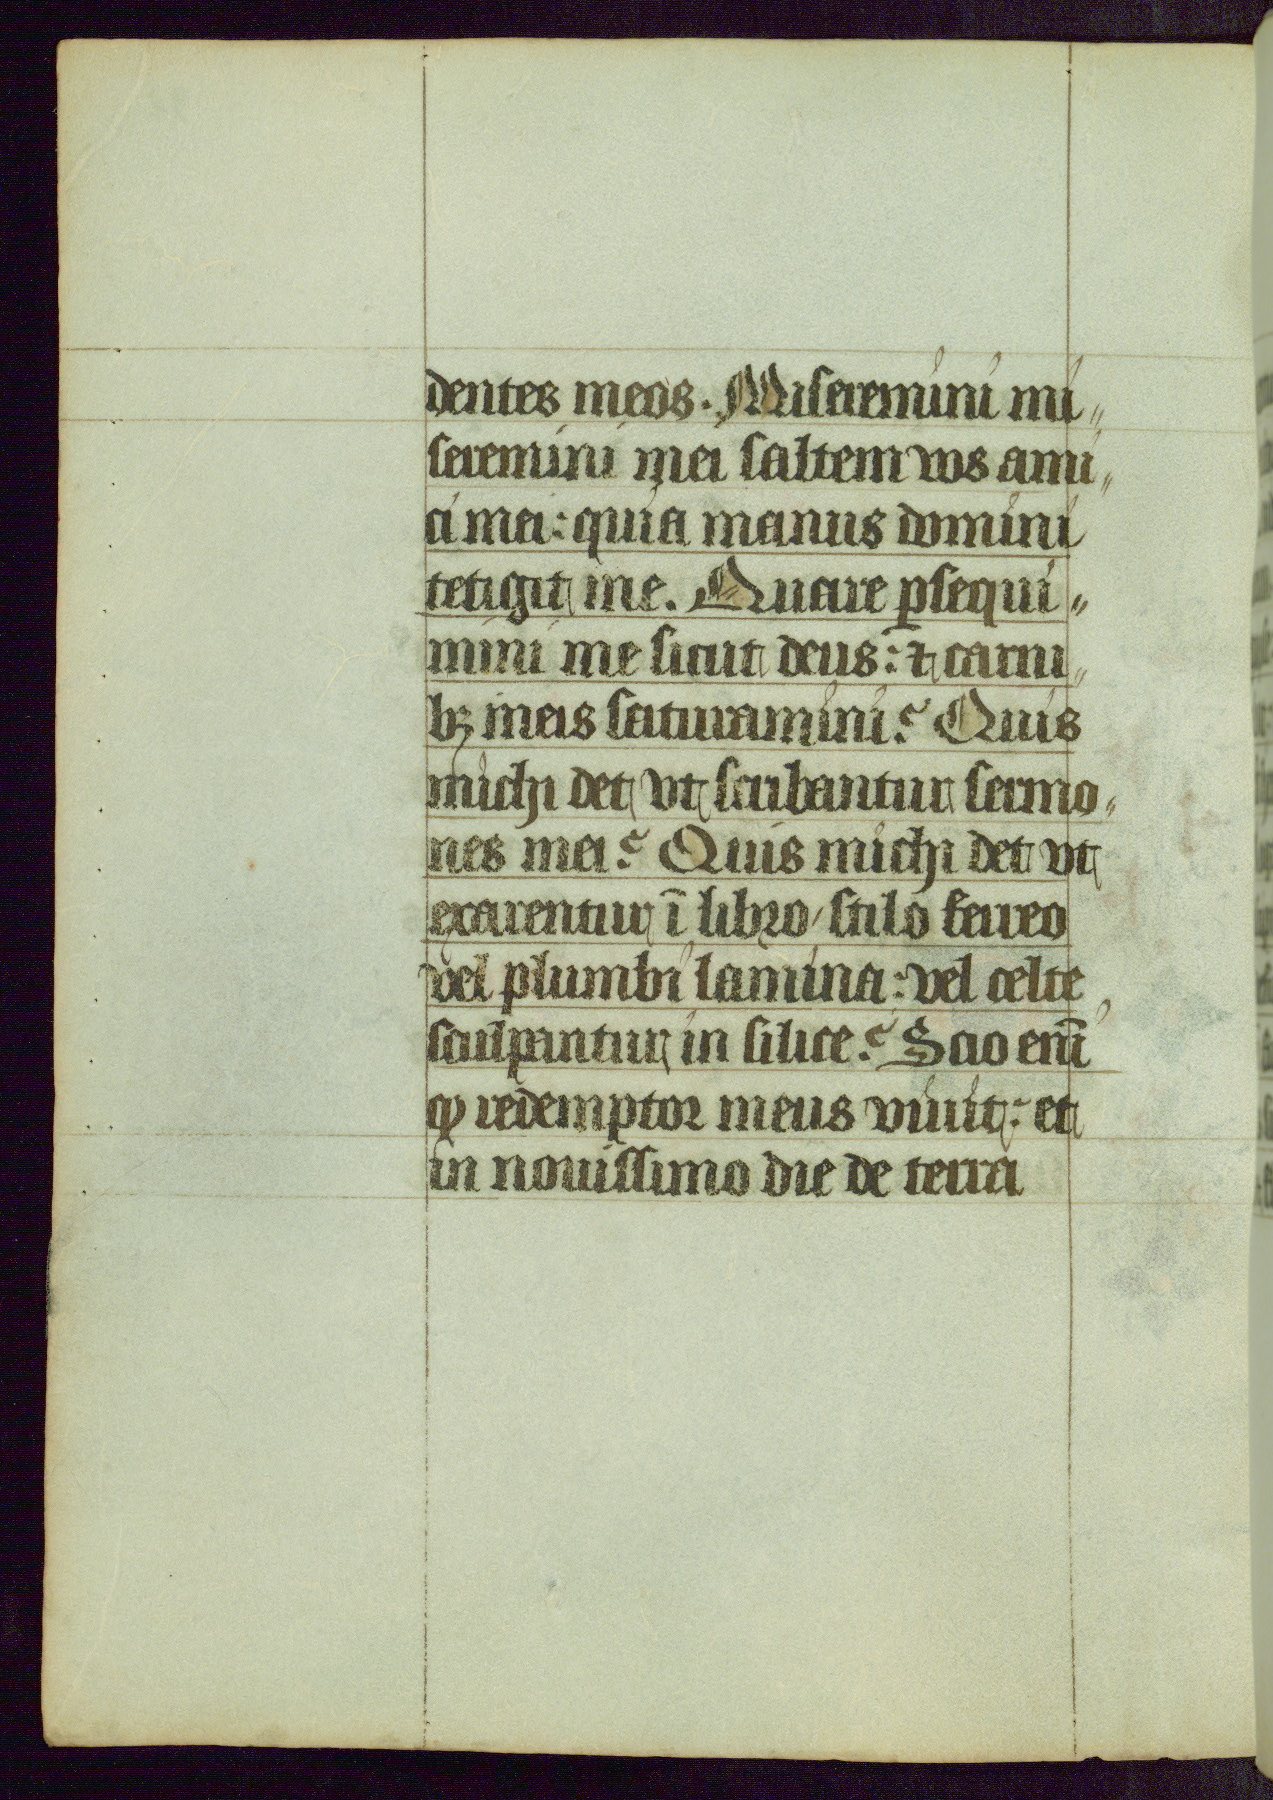 dentes meos. Miseremini mi〃
seremini mei saltem vos ami〃
ci mei: quia manus domini
tetigit me. Quare ꝑsequi〃
mini me sicut deus: ⁊ carni〃
bꝫ meis saturamini? Quis
michi det vt scribantur sermo〃
nes mei? Quis michi det vt
exarentur ī libro / stilo ferreo
vel plumbi lamina: vel celte
sculpantur in silice? Scio enī
ꝙ redemptor meus viuit: et
in nouissimo die de terra